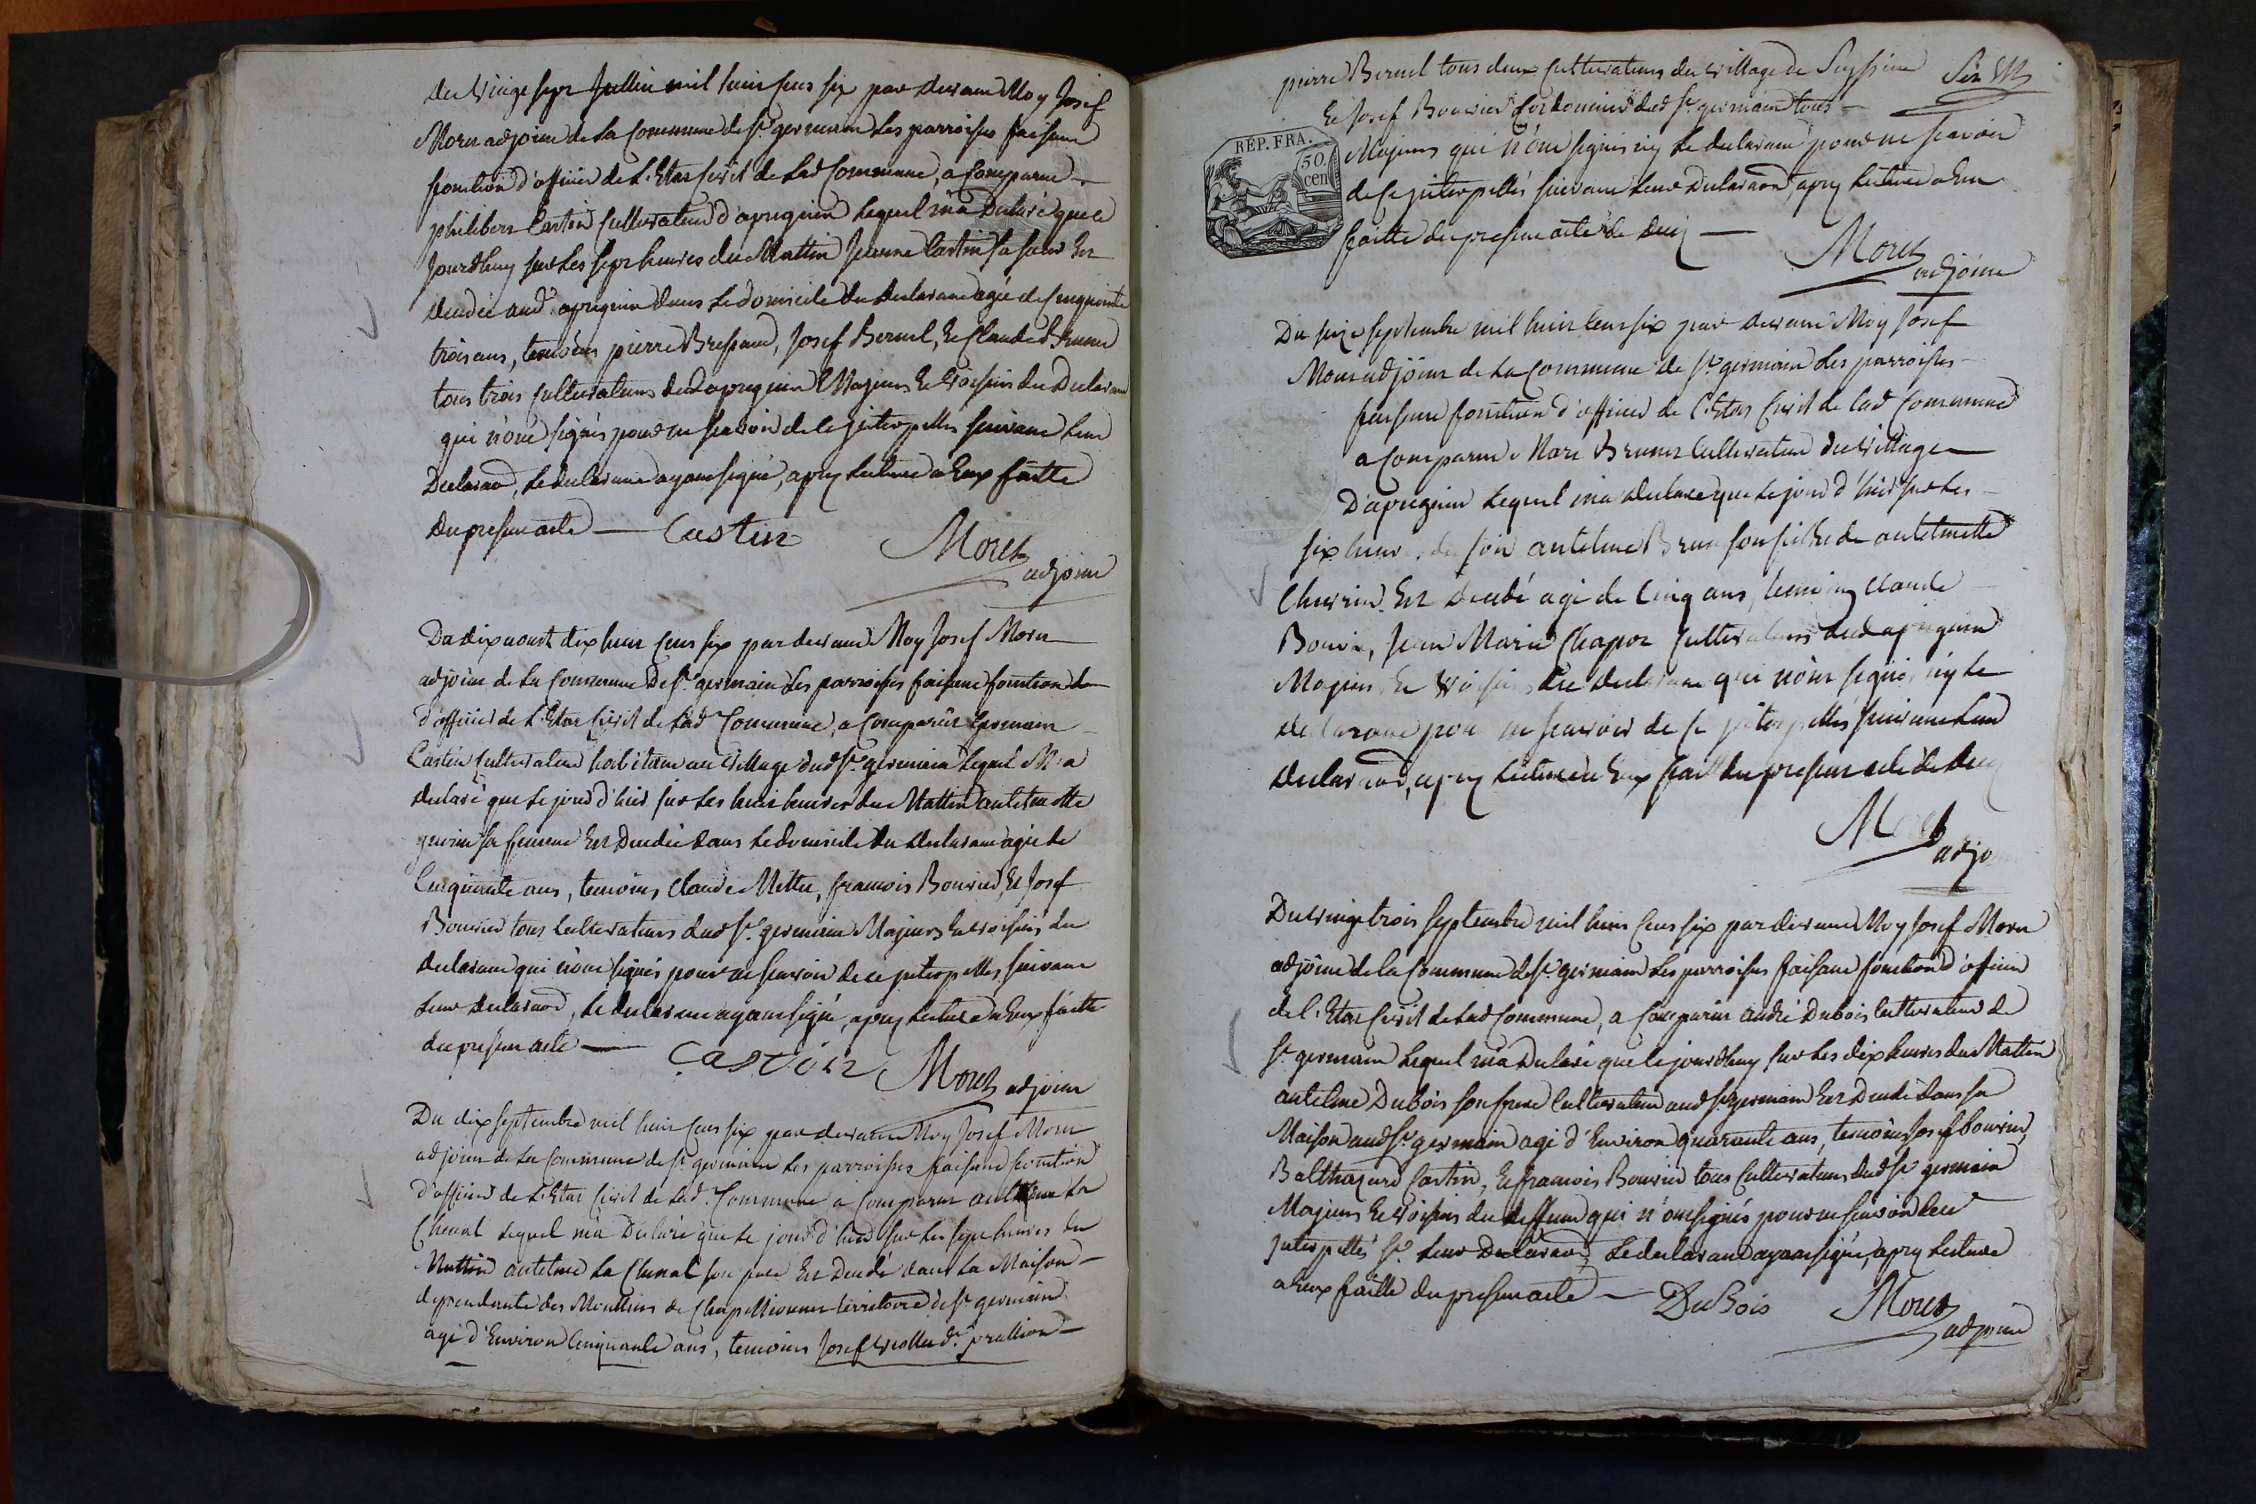 du vingt sept Juillin mil huit cens six par devant Moy Josef
Moret adjoint de la Commune de st germain Les parroisses faisant
fonction d'officier de L'Etat Civil de Lad Commune, a Comparut
philibert Castin Cultivateur d'apregnin Lequel m'a Declaré que ce
Jourdhuy sur Les sept heures du Mattin Jeanne Castin sa sœur Est
decedée aud. apregnin dans Le domicile du declarant agée de Cinquante
trois ans, temoins pierre Bressand, Josef Bernel, Et Claude Brunet
tous trois Cultivateurs dud apregnin Majeurs Et voisins du Declarant
qui n'ont signés pour ne scavoir de ce jnterpellés suivant Leur
Declaraon, Le declarant ayant signé, apres Lecture a Eux faitte
du present acte — Castin
Moret
adjoint
Du dix aoust dix huit cens six par devant Moy Josef Moret
adjoint de La Commune de st germain Les parroisses faisant fonction de
d'officier de L'Etat Civil de Lad Commune, a Comparut Germain
Castin Cultivateur habitant au village dud st germain Lequel M'a
declaré que Le jour d'hier sur Les huit heures du Mattin antelmette
juvin sa femme Est Decedée dans Le domicile du declarant agée de
Cinquante ans, temoins Claude Mette, francois Bouvier, Et Josef
Bouvier tous Cultivateurs dud st germain Majeurs Et voisins du
declarant qui n'ont signés pour ne scavoir de ce jnterpellés suivant
Leur declaraon, Le declarant ayant signé, apres Lecture a Eux faitte
du present acte — Castin Moret adjoint
Du dix septembre mil huit cens six par devant Moy Josef Moret
adjoint de La Commune de st germain Les parroisses faisant fonction
d'officier de L'Etat Civil de Lad. Commune a Comparut antelme La
Chenal Lequel m'a Declaré que Le jour d'hier sur Les sept heures du
Mattin antelme La Chenal son pere Est Decedé dans La Maison
dependante des Moullins de Chapellionnes territoire de st germain
agé d'Environ Cinquante ans, temoins Josef violled dt prallion
pierre Bernel tous deux Cultivateurs du village de Seyssine
Et Josef Bouvier Cordonnier dud st germain tous
RÉP. FRA.
50
cen
Majeurs qui n'ont signés ny Le declarant pour ne scavoir
de ce jnterpellés suivant Leur Declaraon, apres Lecture a Eux
faitte du present acte de deces
Moret
adjoint
Du seize septembre mil huit cens six par devant Moy Josef
Moret adjoint de La Commune de st germain Les parroisses
faisant fonction d'officier de L'Etat Civil de Lad Commune
a Comparut Marc Brunet Cultivateur du village
D'apregnin Lequel m'a declaré que Le jour d'hier sur Les
six heures du soir antelme Brunet son fils et de antelmette
Chevrier Est decedé agé de Cinq ans, temoins Claude
Bouvier, Jean Marie Chapot Cultivateurs dud apregnin
Majeurs Et voisins du declarant qui n'ont signé, ny Le
declarant pour ne scavoir de ce jnterpellés suivant Leur
declaraon, apres Lecture a Eux faitte du present acte de deces
Moret
adjoint
Du vingt trois septembre mil huit cens six par devant Moy Josef Moret
adjoint de la Commune de st germain Les parroisses faisant fonction d'officier
de l'Etat Civil de Lad Commune, a Comparut andré Dubois Cultivateur de
st germain Lequel m'a Declaré que Le jourdhuy sur Les dix heures du Mattin
antelme Dubois son frere Cultivateur aud st germain Est Decedé dans sa
Maison aud st germain agé d'Environ quarante ans, temoins Josef bouvier,
Balthazard Castin, Et francois Bouvier tous Cultivateurs dud st germain
Majeurs Et voisins du deffunt qui n'ont signés pour ne scavoir de ce
Jnterpellés st Leur Declaraon, Le declarant ayant signé, apres Lecture
a Eux faitte du present acte — DuBois Moret
adjoint